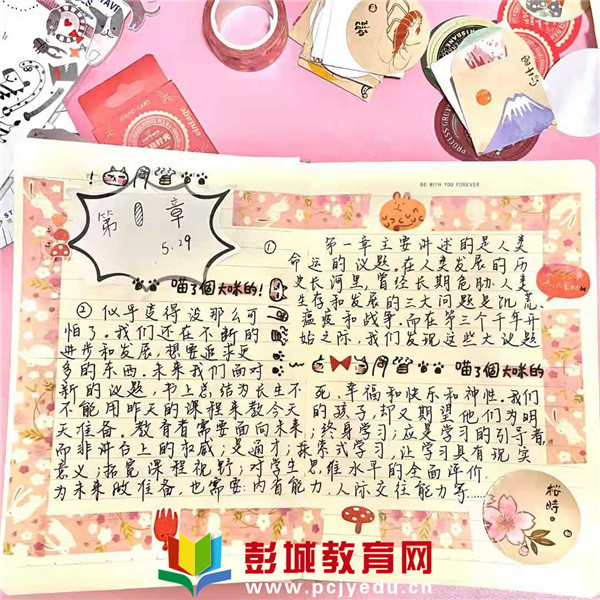 BE WITH YOU FOREVER
第1章
5.29
喵了個大咪的!
① 第一章主要讲述的是人类
命运的议题。在人类发展的历
史长河里,曾经长期危胁人类
生存和发展的三大问题是饥荒、
瘟疫和战争。而在第三个千年开
始之际,我们发现这些大议题
喵了個大咪的
② 似乎变得没那么可
怕了。我们还在不断的
进步和发展,想要追求更
多的东西。未来我们面对
新的议题,书上总结为长生不
死、幸福和快乐和神性。我们
不能用昨天的课程来教今天
的孩子,却又期望他们为明
天准备。教育者需要面向未来,终身学习;应是学习的引导者,
而非讲台上的权威;是通才;探索式学习,让学习具有现实
意义;拓展课程视野;对学生思维水平的全面评价.
为未来做准备,也需要内省能力,人际交往能力等……
富士山
桜時
彭城教育网
www.pcjyedu.cn